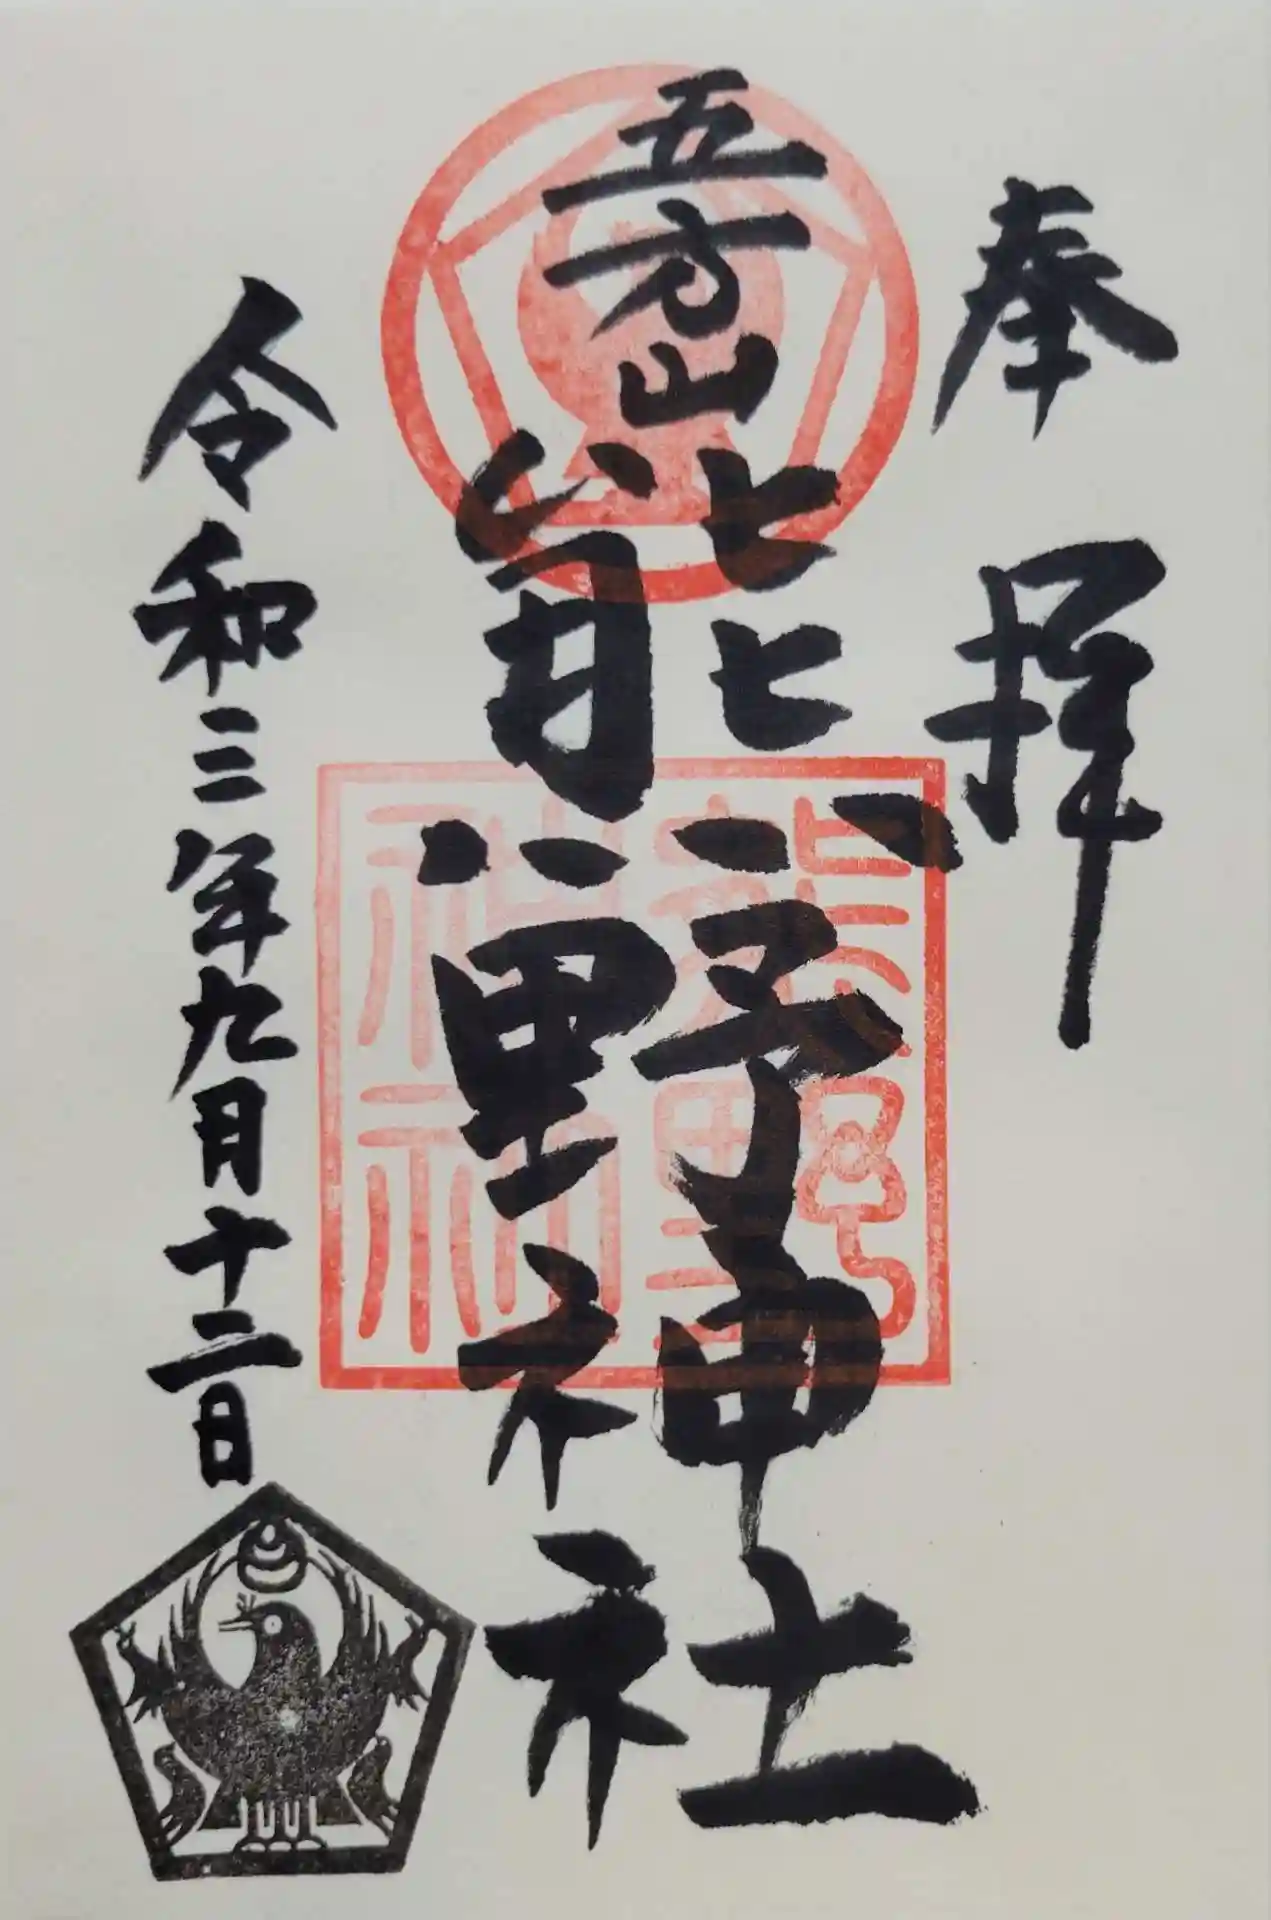 奉拝
五方山
熊野神社
令和三年九月十二日
熊野
神社